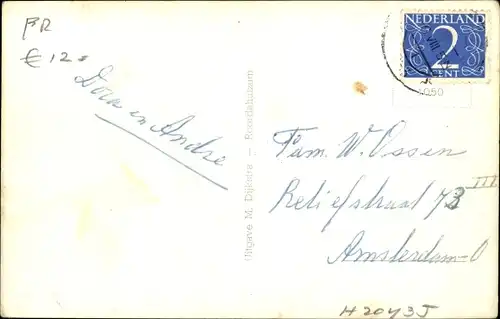 FR
€ 12
Dora en Andre
Uitgave M. Dijkstra — Noordehaburn
NEDERLAND
2
CENT
VIII
4050
Fam. W. Ossen
Reliefstraat 73 III
Amsterdam-O
H20435